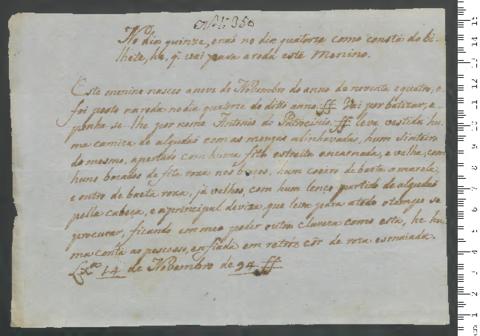 No dia quinze, e não no dia quatorze como consta do bi-
lhete, he, q. vai para a roda este Menino.
Este menino nasceo a nove de Novembro do anno de noventa e quatro, e
foi posto na roda no dia quatorze do ditto anno ff Vai por batizar, e
ponha-se-lhe por nome Antonio do Patrocinio ff Leva vestida hu-
ma camiza de algudão com as mangas alinhavadas, hum sinteiro
do mesmo, apertado com huma fita estreita encarnada, e velha, com
huns bocados de fita roxa nos braços, hum coeiro de baeta amarela,
e outro de baeta roxa, já velhos, com hum lenço partido de algudão
pella cabeça, e a principal deviza, que leva para a todo o tempo se
procurar, ficando em meo poder outra clareza como esta, he hu-
ma conta ao pescoso, enfiada em retroz côr de roza esmaiada.
Lxa 14 de Novembro de 94 ff